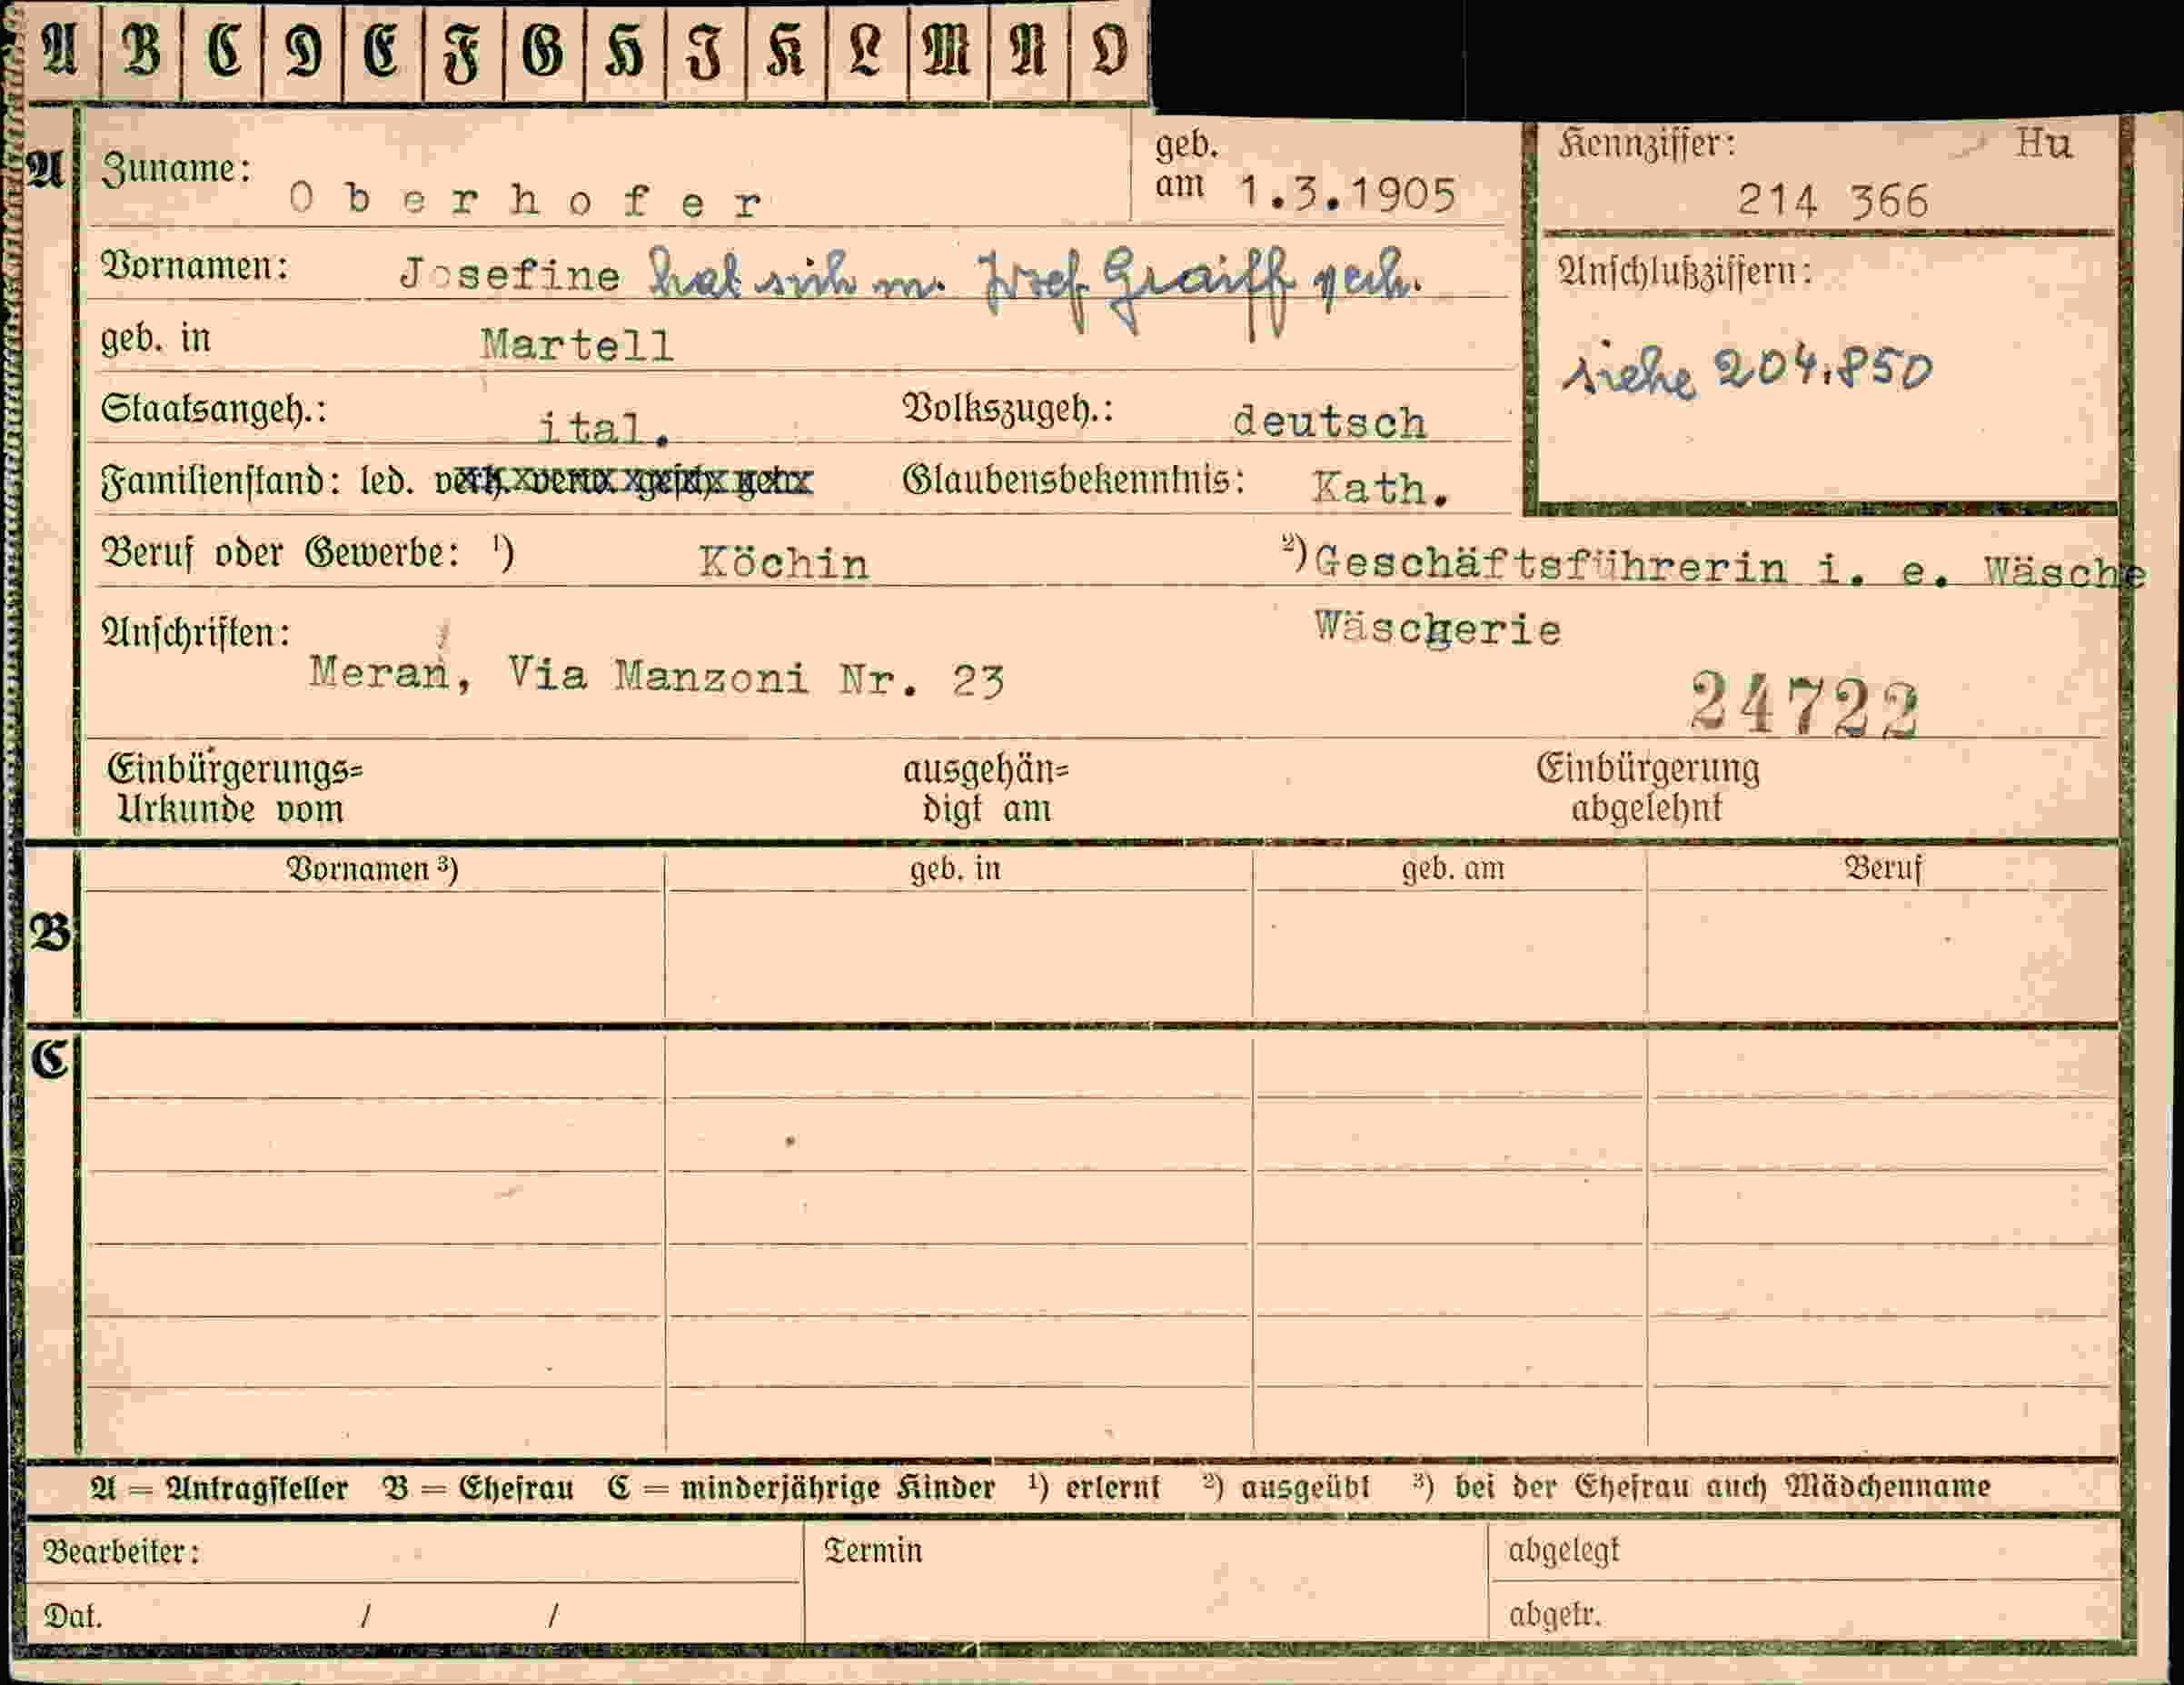 A B C D E F G H I K L M N O
A Zuname: Oberhofer geb. am 1.3.1905
Kennziffer: Hu
214 366
Vornamen: Josefine hat sich m. Josef Graiff verh.
Anschlußziffern:
siehe 204.850
geb. in Martell
Staatsangeh.: ital. Volkszugeh.: deutsch
Familienstand: led. verh. verw. gesch. getr. Glaubensbekenntnis: Kath.
Beruf oder Gewerbe: ¹) Köchin ²) Geschäftsführerin i. e. Wäsche
Wäscherie
Anschriften:
Meran, Via Manzoni Nr. 23
24722
Einbürgerungs= ausgehän= Einbürgerung
Urkunde vom digt am abgelehnt
Vornamen ³) geb. in geb. am Beruf
B
C
A = Antragsteller B = Ehefrau C = minderjährige Kinder ¹) erlernt ²) ausgeübt ³) bei der Ehefrau auch Mädchenname
Bearbeiter: Termin abgelegt
Dat. / / abgetr.